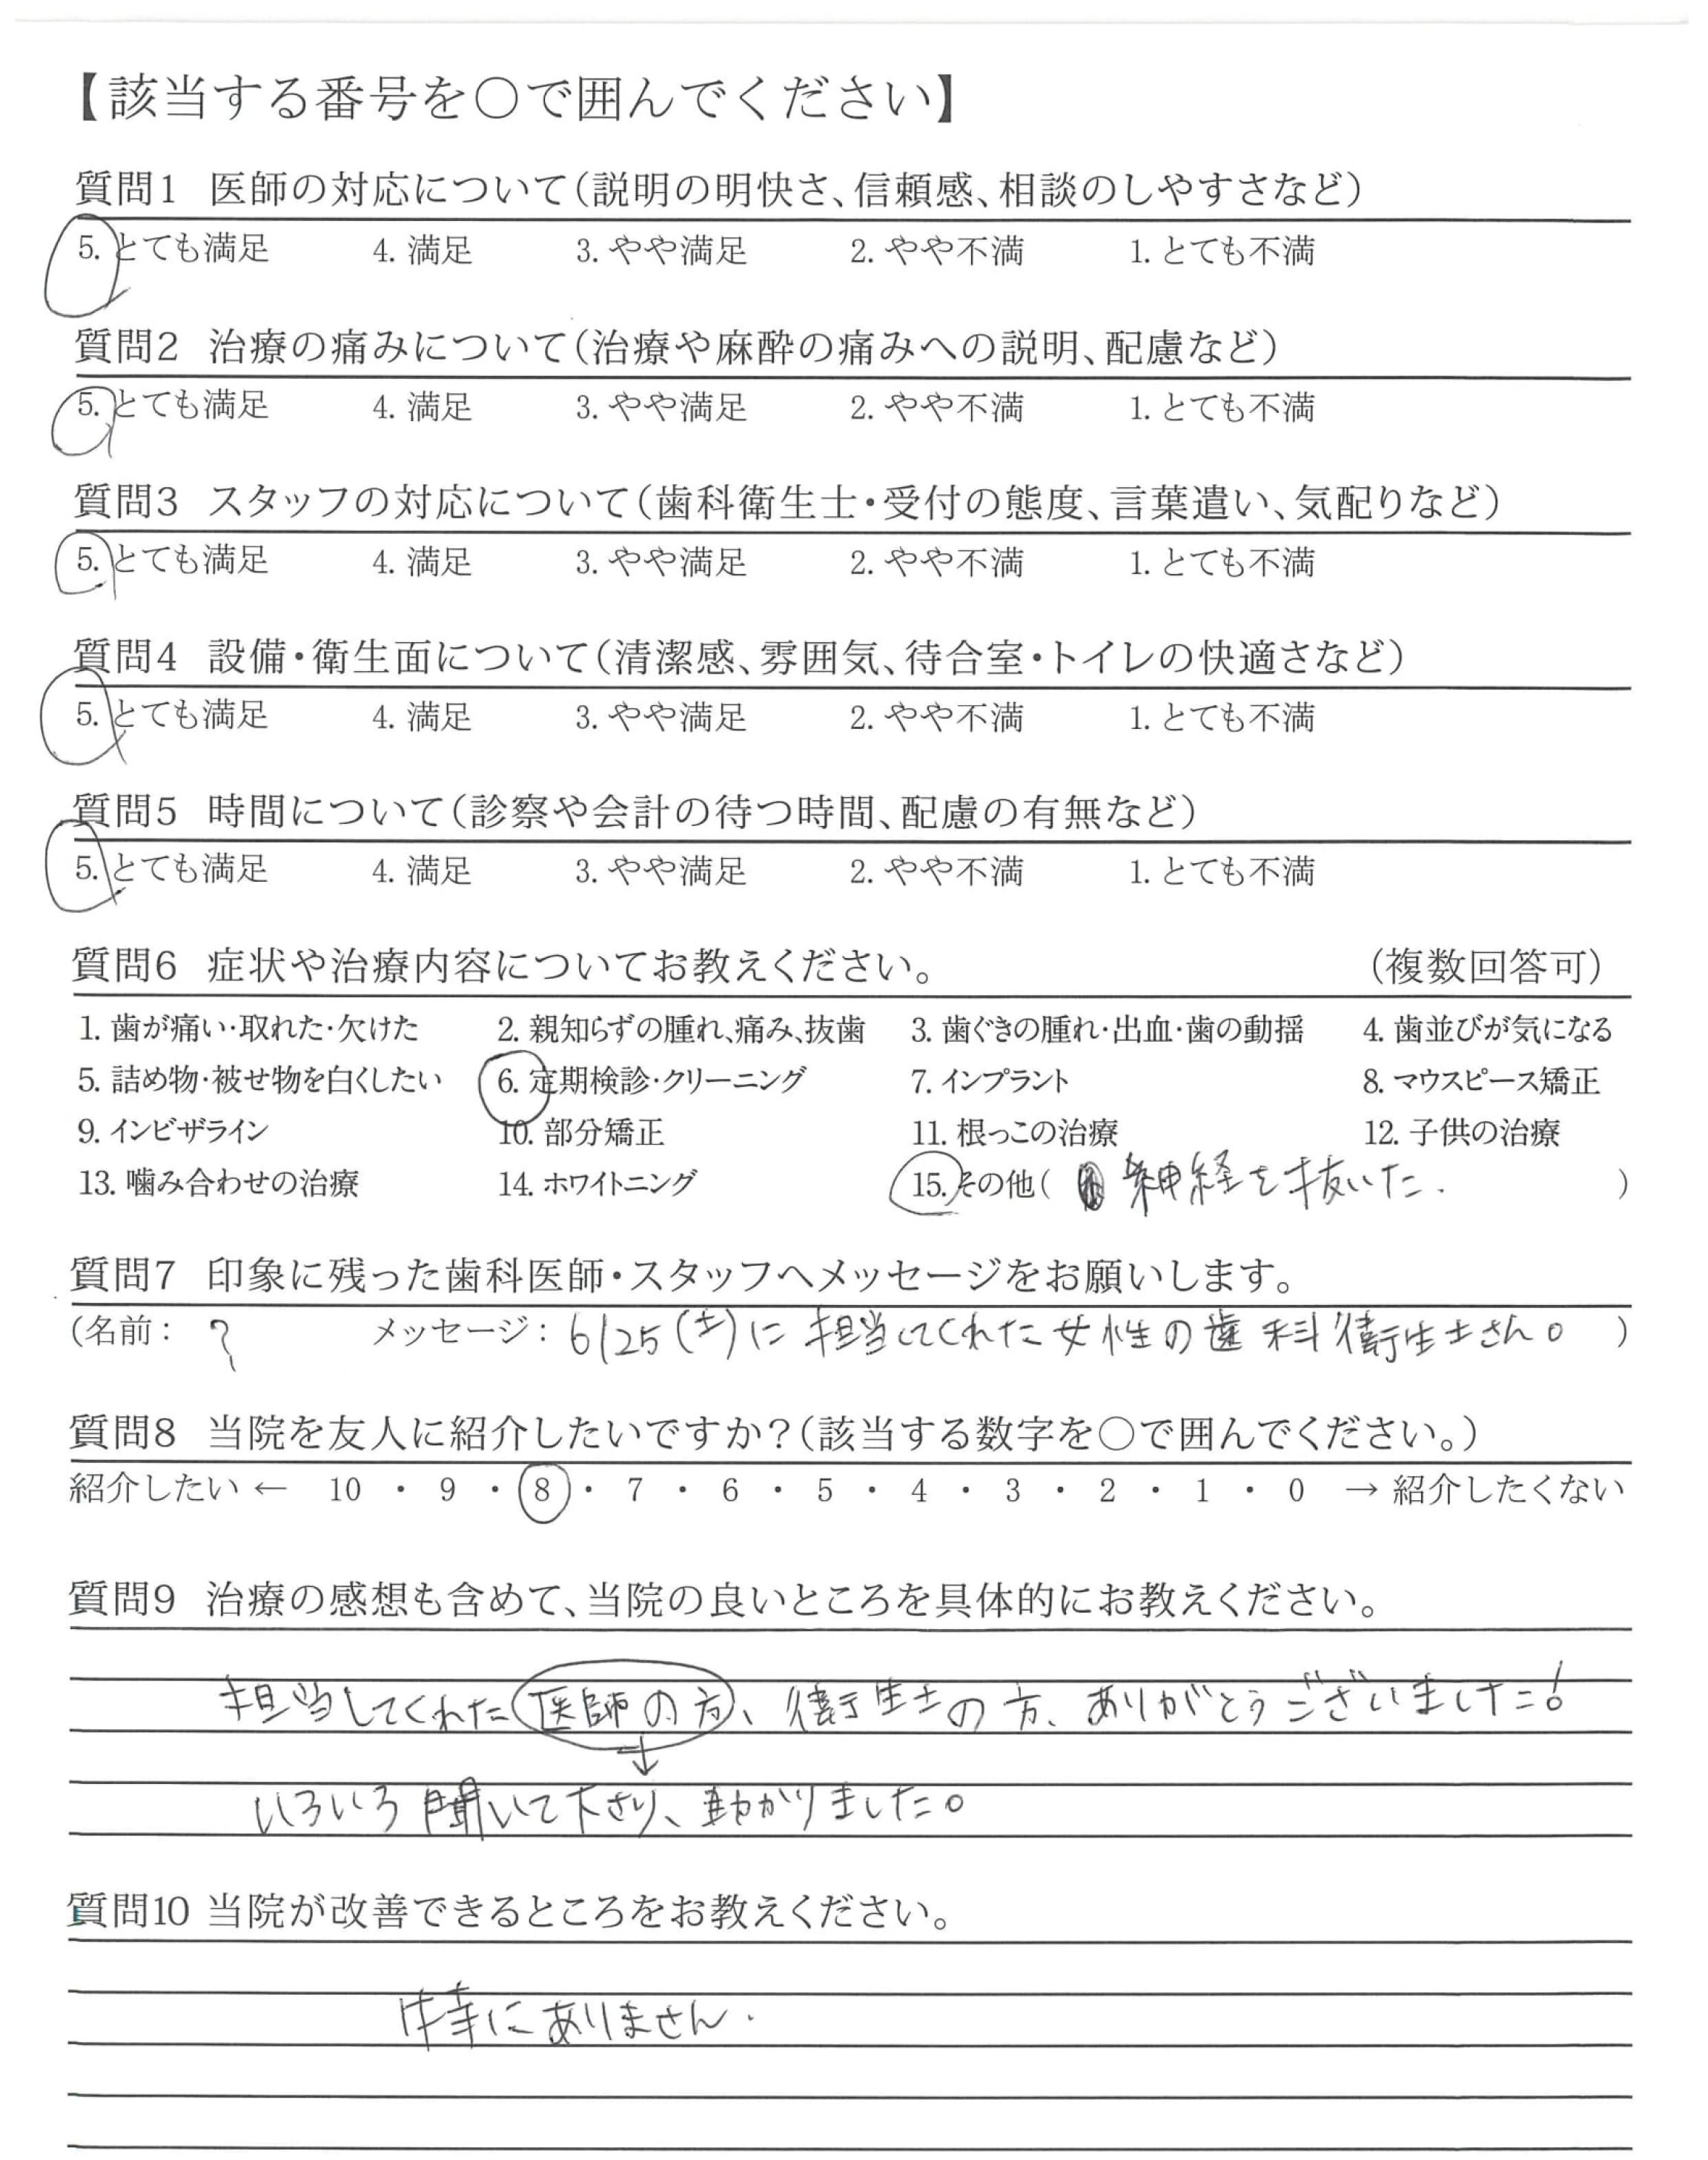 【該当する番号を〇で囲んでください】
質問1 医師の対応について(説明の明快さ、信頼感、相談のしやすさなど)
5. とても満足 4. 満足 3. やや満足 2. やや不満 1. とても不満
質問2 治療の痛みについて(治療や麻酔の痛みへの説明、配慮など)
5. とても満足 4. 満足 3. やや満足 2. やや不満 1. とても不満
質問3 スタッフの対応について(歯科衛生士・受付の態度、言葉遣い、気配りなど)
5. とても満足 4. 満足 3. やや満足 2. やや不満 1. とても不満
質問4 設備・衛生面について(清潔感、雰囲気、待合室・トイレの快適さなど)
5. とても満足 4. 満足 3. やや満足 2. やや不満 1. とても不満
質問5 時間について(診察や会計の待つ時間、配慮の有無など)
5. とても満足 4. 満足 3. やや満足 2. やや不満 1. とても不満
質問6 症状や治療内容についてお教えください。 (複数回答可)
1. 歯が痛い・取れた・欠けた 2. 親知らずの腫れ、痛み、抜歯 3. 歯ぐきの腫れ・出血・歯の動揺 4. 歯並びが気になる
5. 詰め物・被せ物を白くしたい 6. 定期検診・クリーニング 7. インプラント 8. マウスピース矯正
9. インビザライン 10. 部分矯正 11. 根っこの治療 12. 子供の治療
13. 噛み合わせの治療 14. ホワイトニング 15. その他( 神経を抜いた. )
質問7 印象に残った歯科医師・スタッフへメッセージをお願いします。
(名前: ? メッセージ: 6/25(土)に担当してくれた女性の歯科衛生士さん。 )
質問8 当院を友人に紹介したいですか?(該当する数字を〇で囲んでください。)
紹介したい ← 10 ・ 9 ・ 8 ・ 7 ・ 6 ・ 5 ・ 4 ・ 3 ・ 2 ・ 1 ・ 0 → 紹介したくない
質問9 治療の感想も含めて、当院の良いところを具体的にお教えください。
担当してくれた医師の方、衛生士の方、ありがとうございました!
↓
いろいろ聞いて下さり、助かりました。
質問10 当院が改善できるところをお教えください。
特にありません.